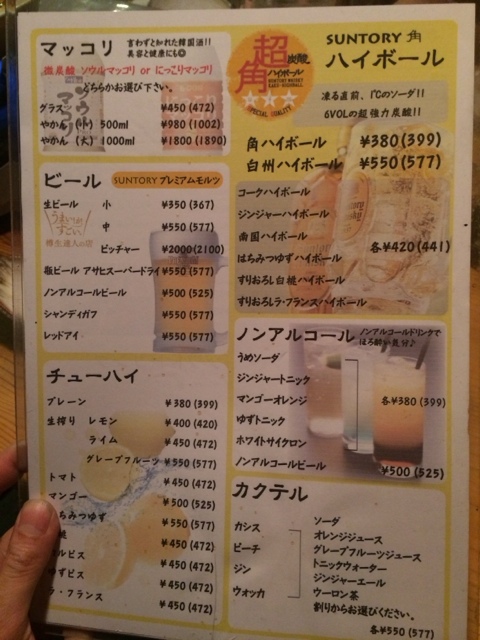 マッコリ
言わずと知れた韓国酒!!
美容と健康にも◎
微炭酸 ソウルマッコリ or にっこりマッコリ
どちらかお選び下さい。
グラス ¥450(472)
やかん(小) 500ml ¥980(1002)
やかん(大) 1000ml ¥1800(1890)
ビール SUNTORY プレミアムモルツ
生ビール 小 ¥350(367)
中 ¥550(577)
ピッチャー ¥2000(2100)
うまいッ
すごい。
樽生達人の店
瓶ビール アサヒスーパードライ ¥550(577)
ノンアルコールビール ¥500(525)
シャンディガフ ¥550(577)
レッドアイ ¥550(577)
チューハイ
プレーン ¥380(399)
生搾り レモン ¥400(420)
ライム ¥450(472)
グレープフルーツ ¥550(577)
トマト ¥450(472)
マンゴー ¥500(525)
ちみつゆず ¥550(577)
桃 ¥450(472)
ルピス ¥450(472)
ゆずピス ¥450(472)
ラ・フランス ¥450(472)
超炭酸
角ハイボール
SUNTORY WHISKY
KAKU-HIGHBALL
SPECIAL QUALITY
SUNTORY 角
ハイボール
凍る直前、1℃のソーダ!!
6VOLの超強力炭酸!!
角ハイボール ¥380(399)
白州ハイボール ¥550(577)
コークハイボール
ジンジャーハイボール
南国ハイボール
各¥420(441)
はちみつゆずハイボール
すりおろし白桃ハイボール
すりおろしラ・フランスハイボール
ノンアルコール
ノンアルコールドリンクで
ほろ酔い気分♪
うめソーダ
ジンジャートニック
マンゴーオレンジ 各¥380(399)
ゆずトニック
ホワイトサイクロン
ノンアルコールビール ¥500(525)
カクテル
カシス
ピーチ
ジン
ウォッカ
ソーダ
オレンジジュース
グレープフルーツジュース
トニックウォーター
ジンジャーエール
ウーロン茶
割りからお選びください。
各¥550(577)